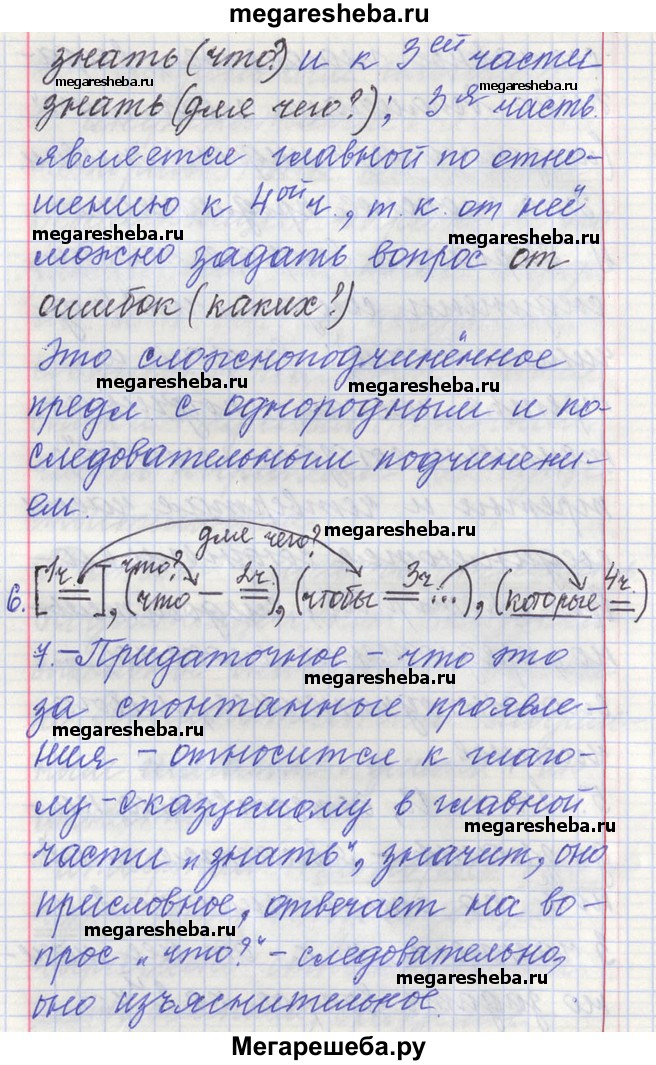 megaresheba.ru
знать (что?) и к 3ей части
megaresheba.ru megaresheba.ru
знать (для чего?); 3я часть
является главной по отно-
шению к 4ой ч., т. к. от неё
megaresheba.ru megaresheba.ru
можно задать вопрос от
ошибок (каких?)
Это сложноподчинённое
megaresheba.ru megaresheba.ru
предл с однородным и по-
следовательным подчинени-
ем.
для чего? megaresheba.ru
1ч. что? 2ч. 3ч. 4ч.
6. [=], (что – =), (чтобы = ...), (которые =)
7. – Придаточное – что это
megaresheba.ru
за спонтанные проявле-
megaresheba.ru
ния – относится к глаго-
лу-сказуемому в главной
megaresheba.ru
части „знать“, значит, оно
присловное, отвечает на во-
megaresheba.ru
прос „что?“ – следовательно,
megaresheba.ru
оно изъяснительное.
Мегарешеба.ру